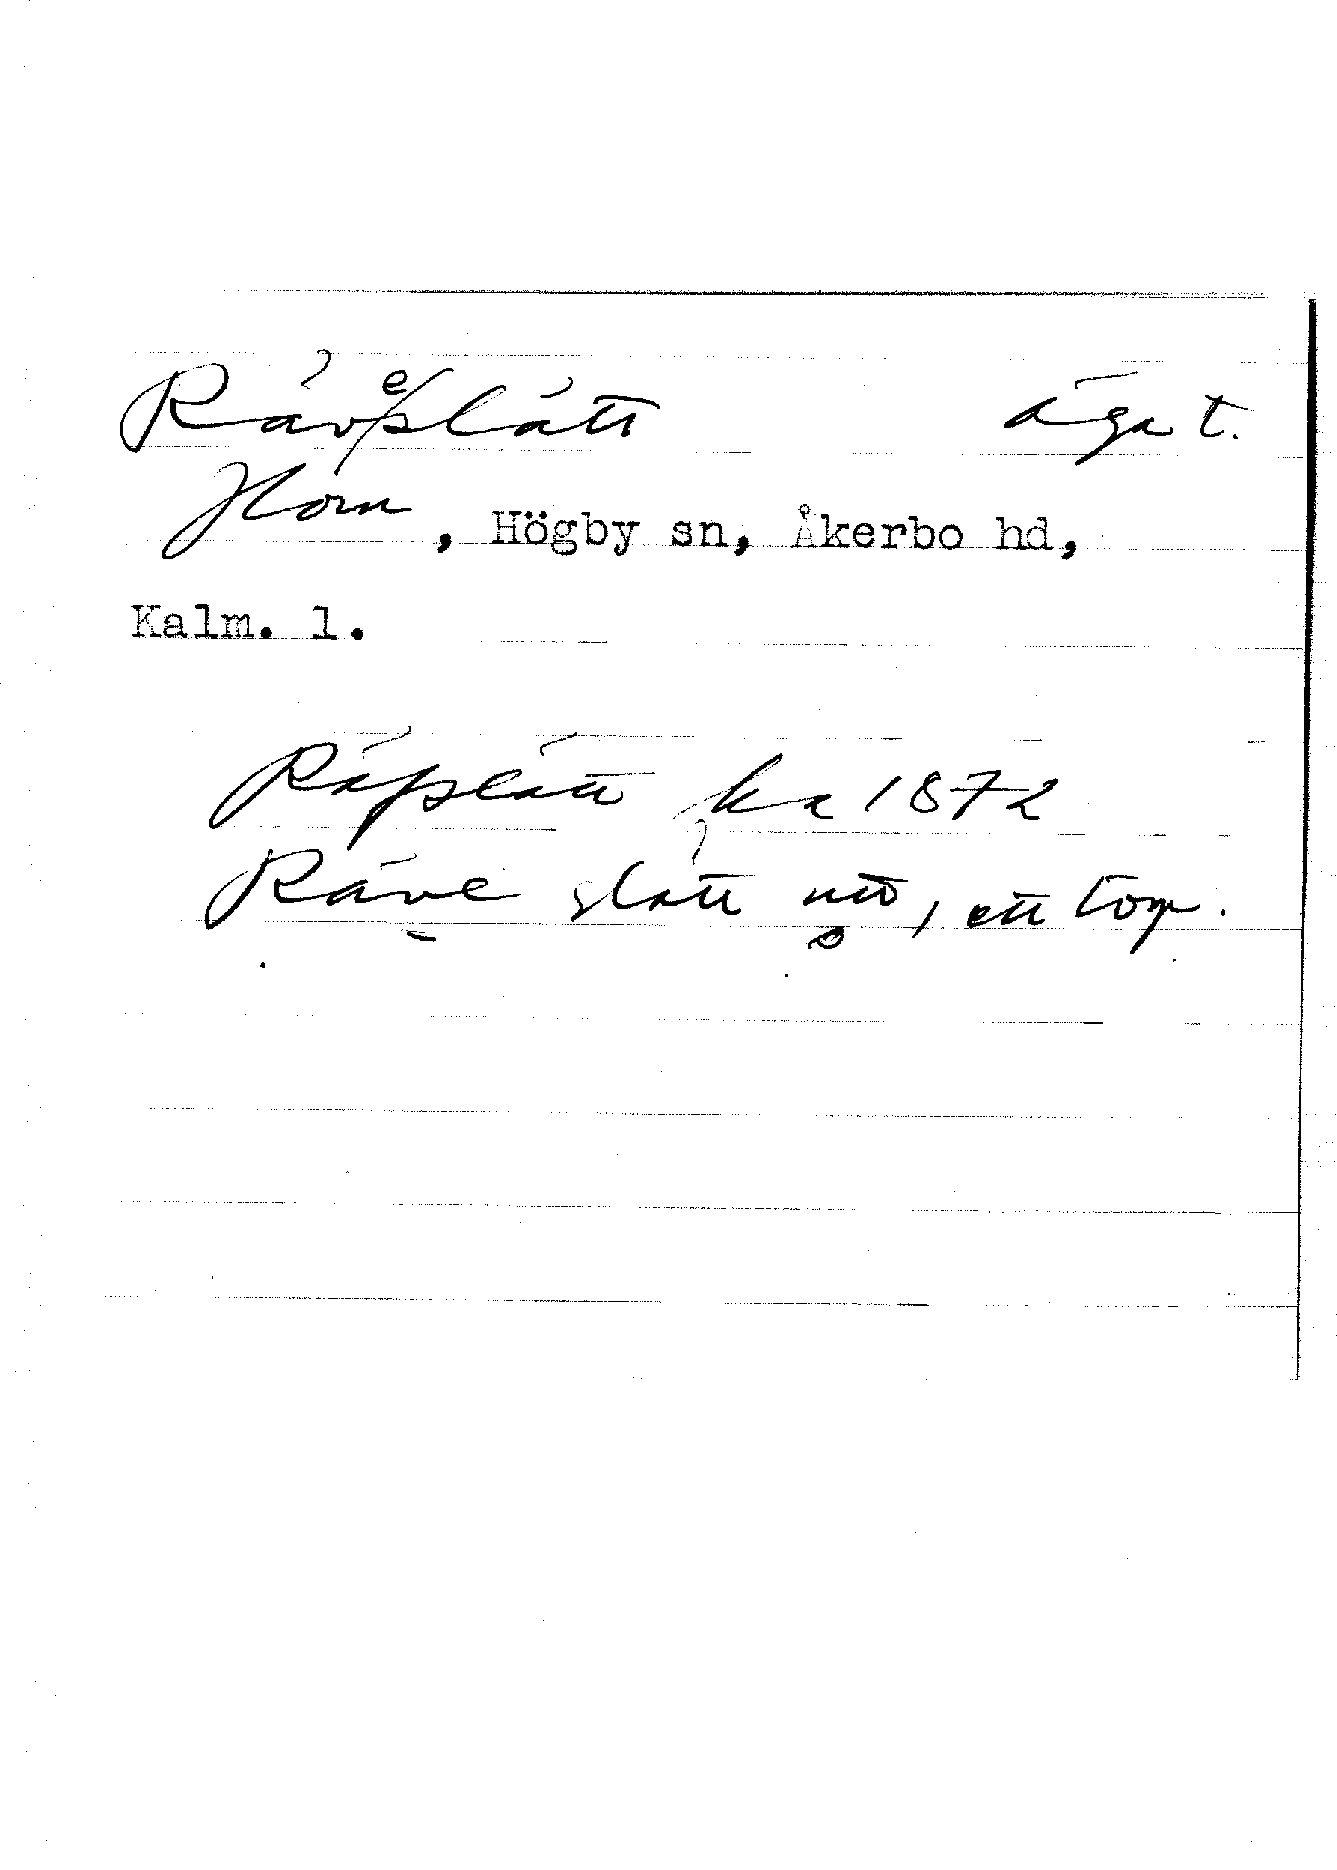 Räveslätt ägat.
Horn, Högby sn, Åkerbo hd,
Kalm. l.
Räfslätt ka 1872
Räve slätt, ett torp.